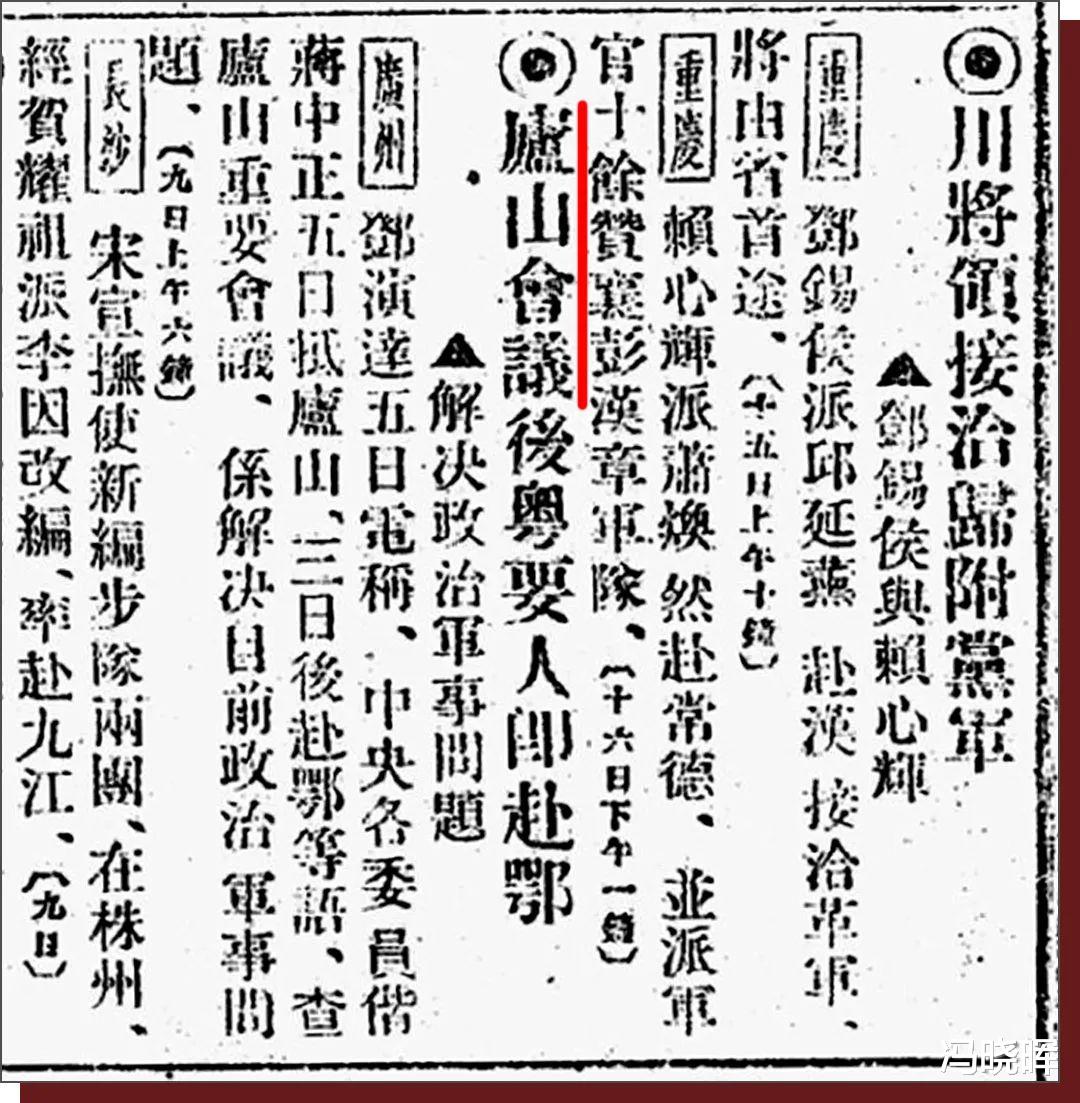 ◉川將領接洽歸附黨軍
▲鄧錫侯與賴心輝
重慶 鄧錫侯派邱延薰 赴漢 接洽革軍、
將由省首途、（十五日上午十鐘）
重慶 賴心輝派蕭煥 然赴常德、 並派軍
官十餘贊襄彭漢章軍隊、（十六日下午一鐘）
◉廬山會議後粵要人卽赴鄂
▲解決政治軍事問題
廣州 鄧演達五日電稱、 中央各委員偕
蔣中正五日抵廬山、三日後赴鄂等語、查
廬山重要會議、 係解决目前政治 軍事問
題、（九日上午六鐘）
長沙 宋宣撫使新編步隊兩團、在株州、
經賀耀祖派李因改編、率赴九江、（九日）
冯晓晖